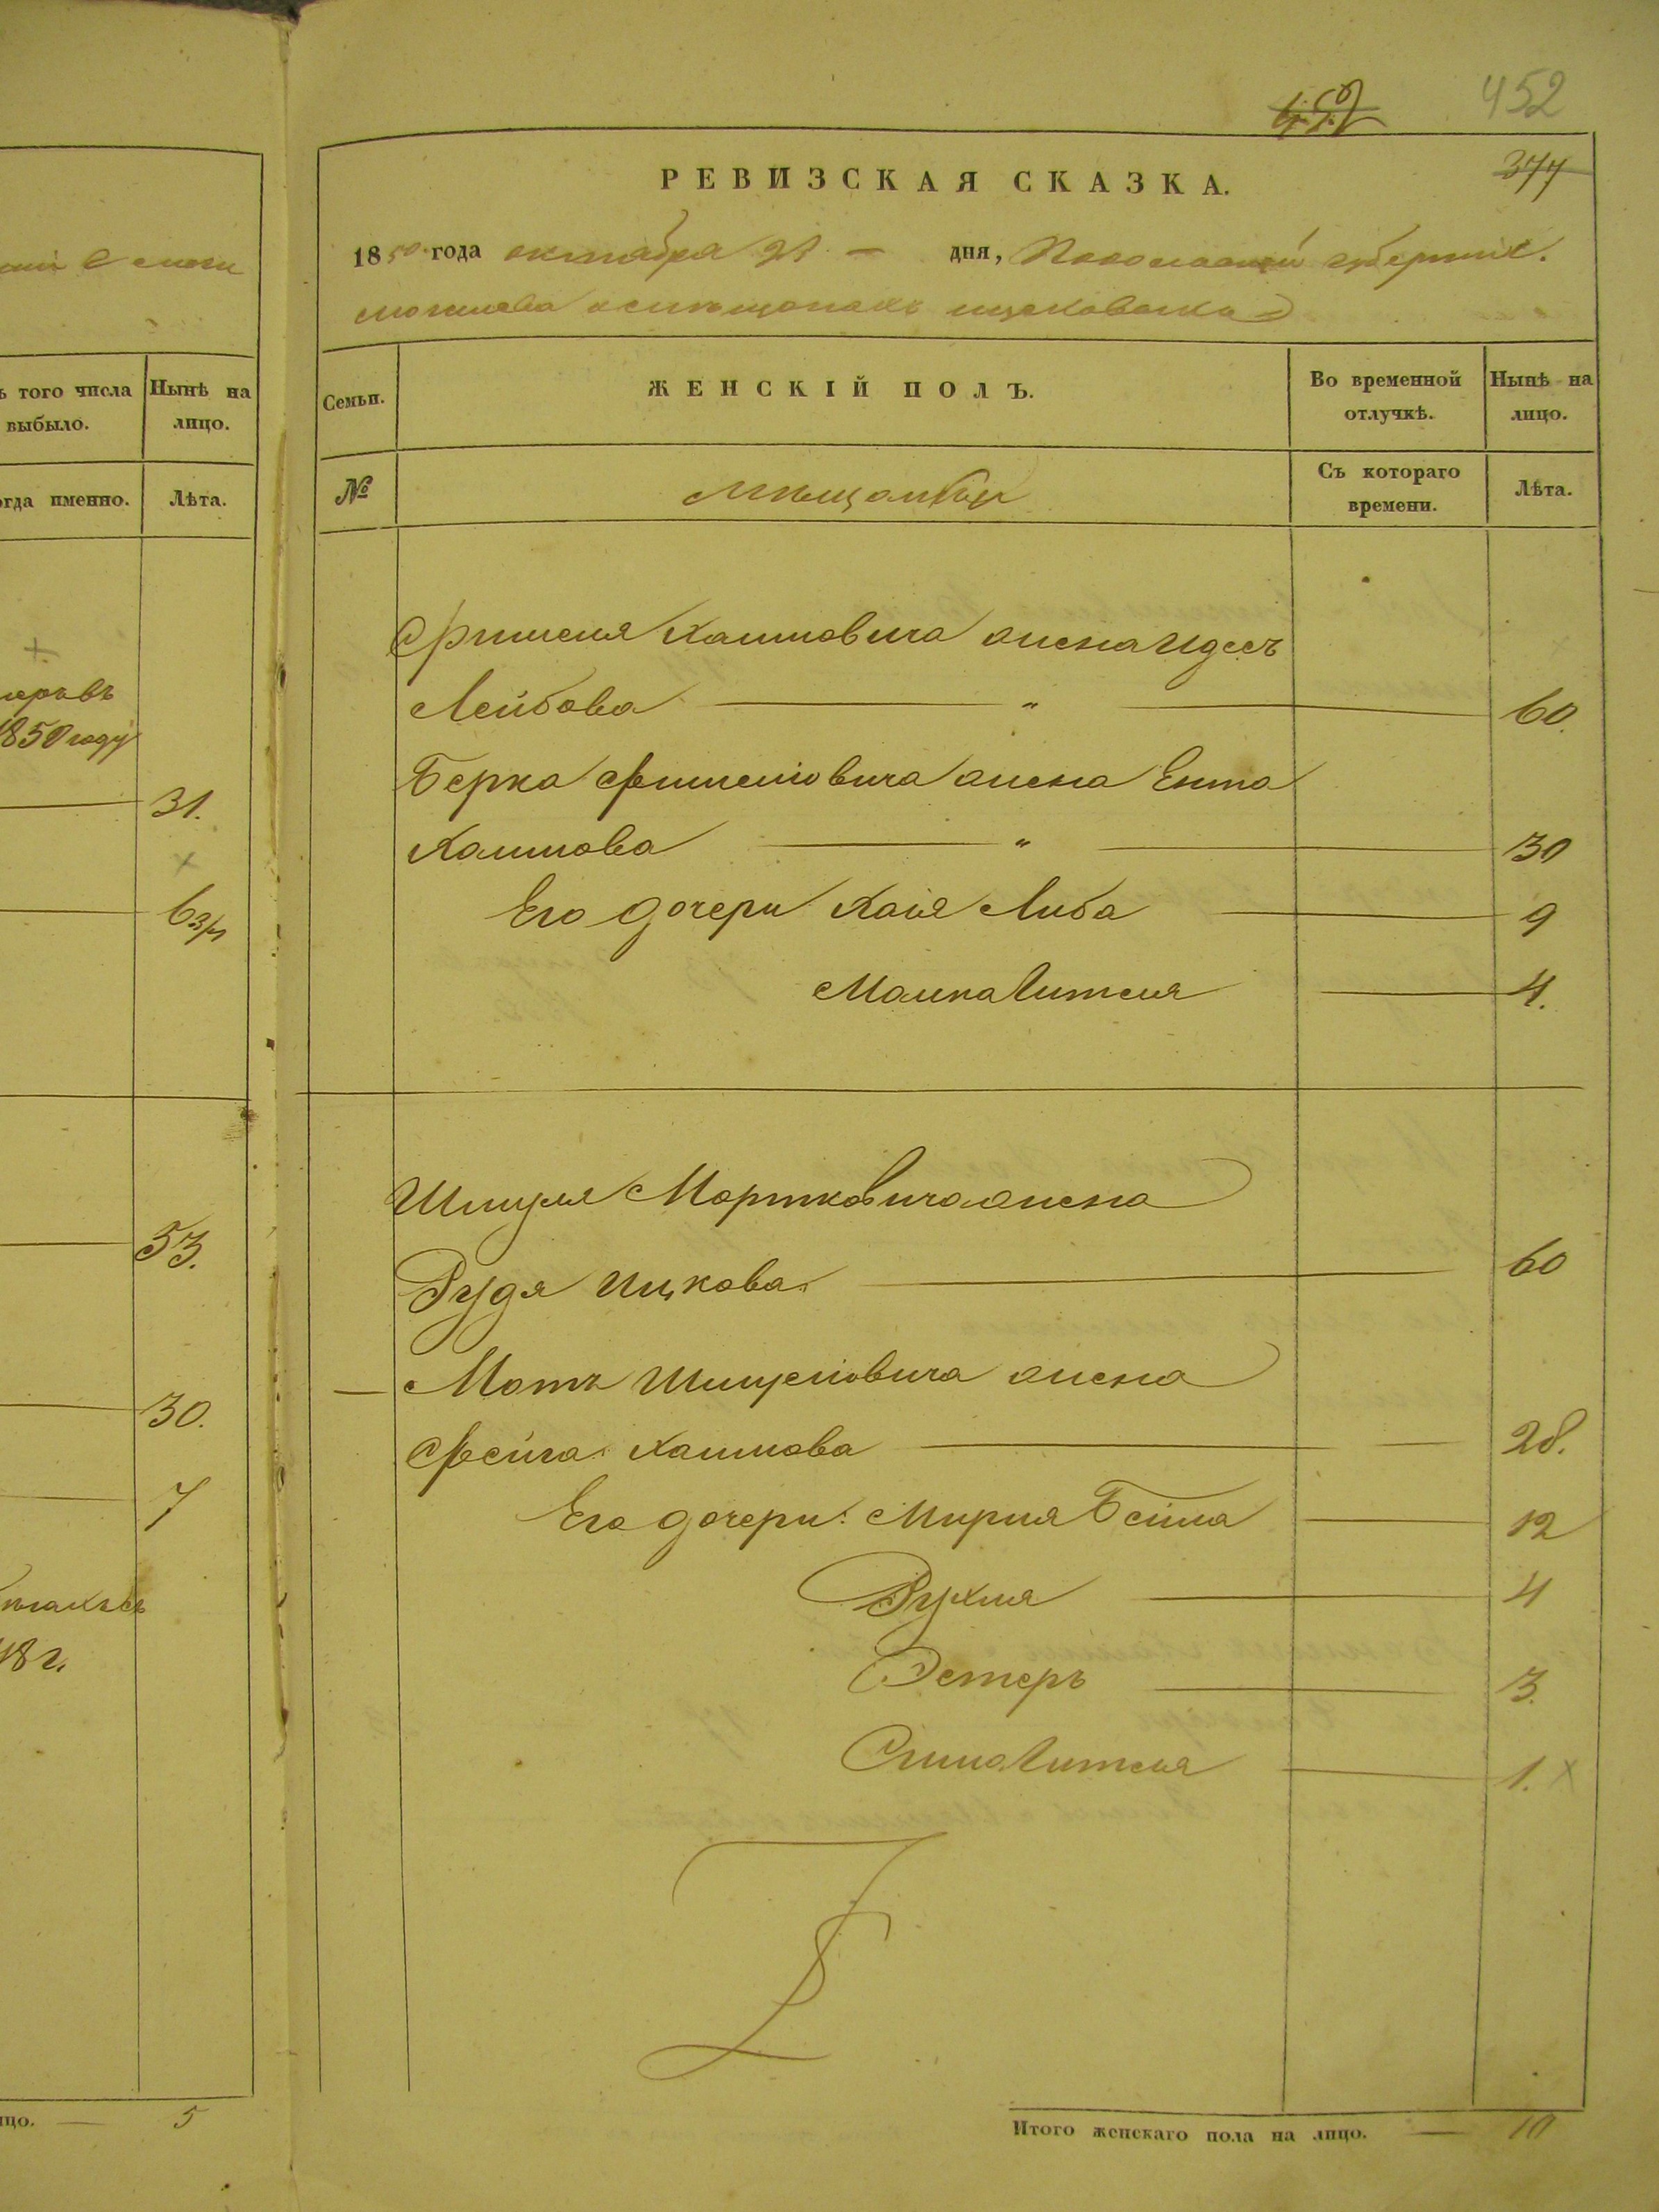 452
452
377
РЕВИЗСКАЯ СКАЗКА.
1850 года октября 21 — дня, Подольской губернии.
могилева
Семьи.
ЖЕНСКІЙ ПОЛЪ.
Во временной отлучкѣ.
Нынѣ на лицо.
№
мѣщанъ
Съ котораго времени.
Лѣта.
Фишеля Хаимовича жена Идесъ
Лейбова — " — 60.
Берка Фишелiовича жена Ента
Хаимова — " — 30
Его дочери Хаiя Либа — 9
Малка Витсля — 4.
Шмуля Мортковича жена
Рудя Ицкова. — 60
— Мотя Шмулiовича жена
Фейга Хаимова — 28.
Его дочери: Мирля Бейла — 12
Рухля — 4
Эстеръ — 3.
Витсля — 1. x
Итого женскаго пола на лицо. — 10
ъ того числа выбыло.
Нынѣ на лицо.
огда именно.
Лѣта.
+
1850 году
31.
x
6 3/м
53.
30.
7
48 г.
цо. — 5